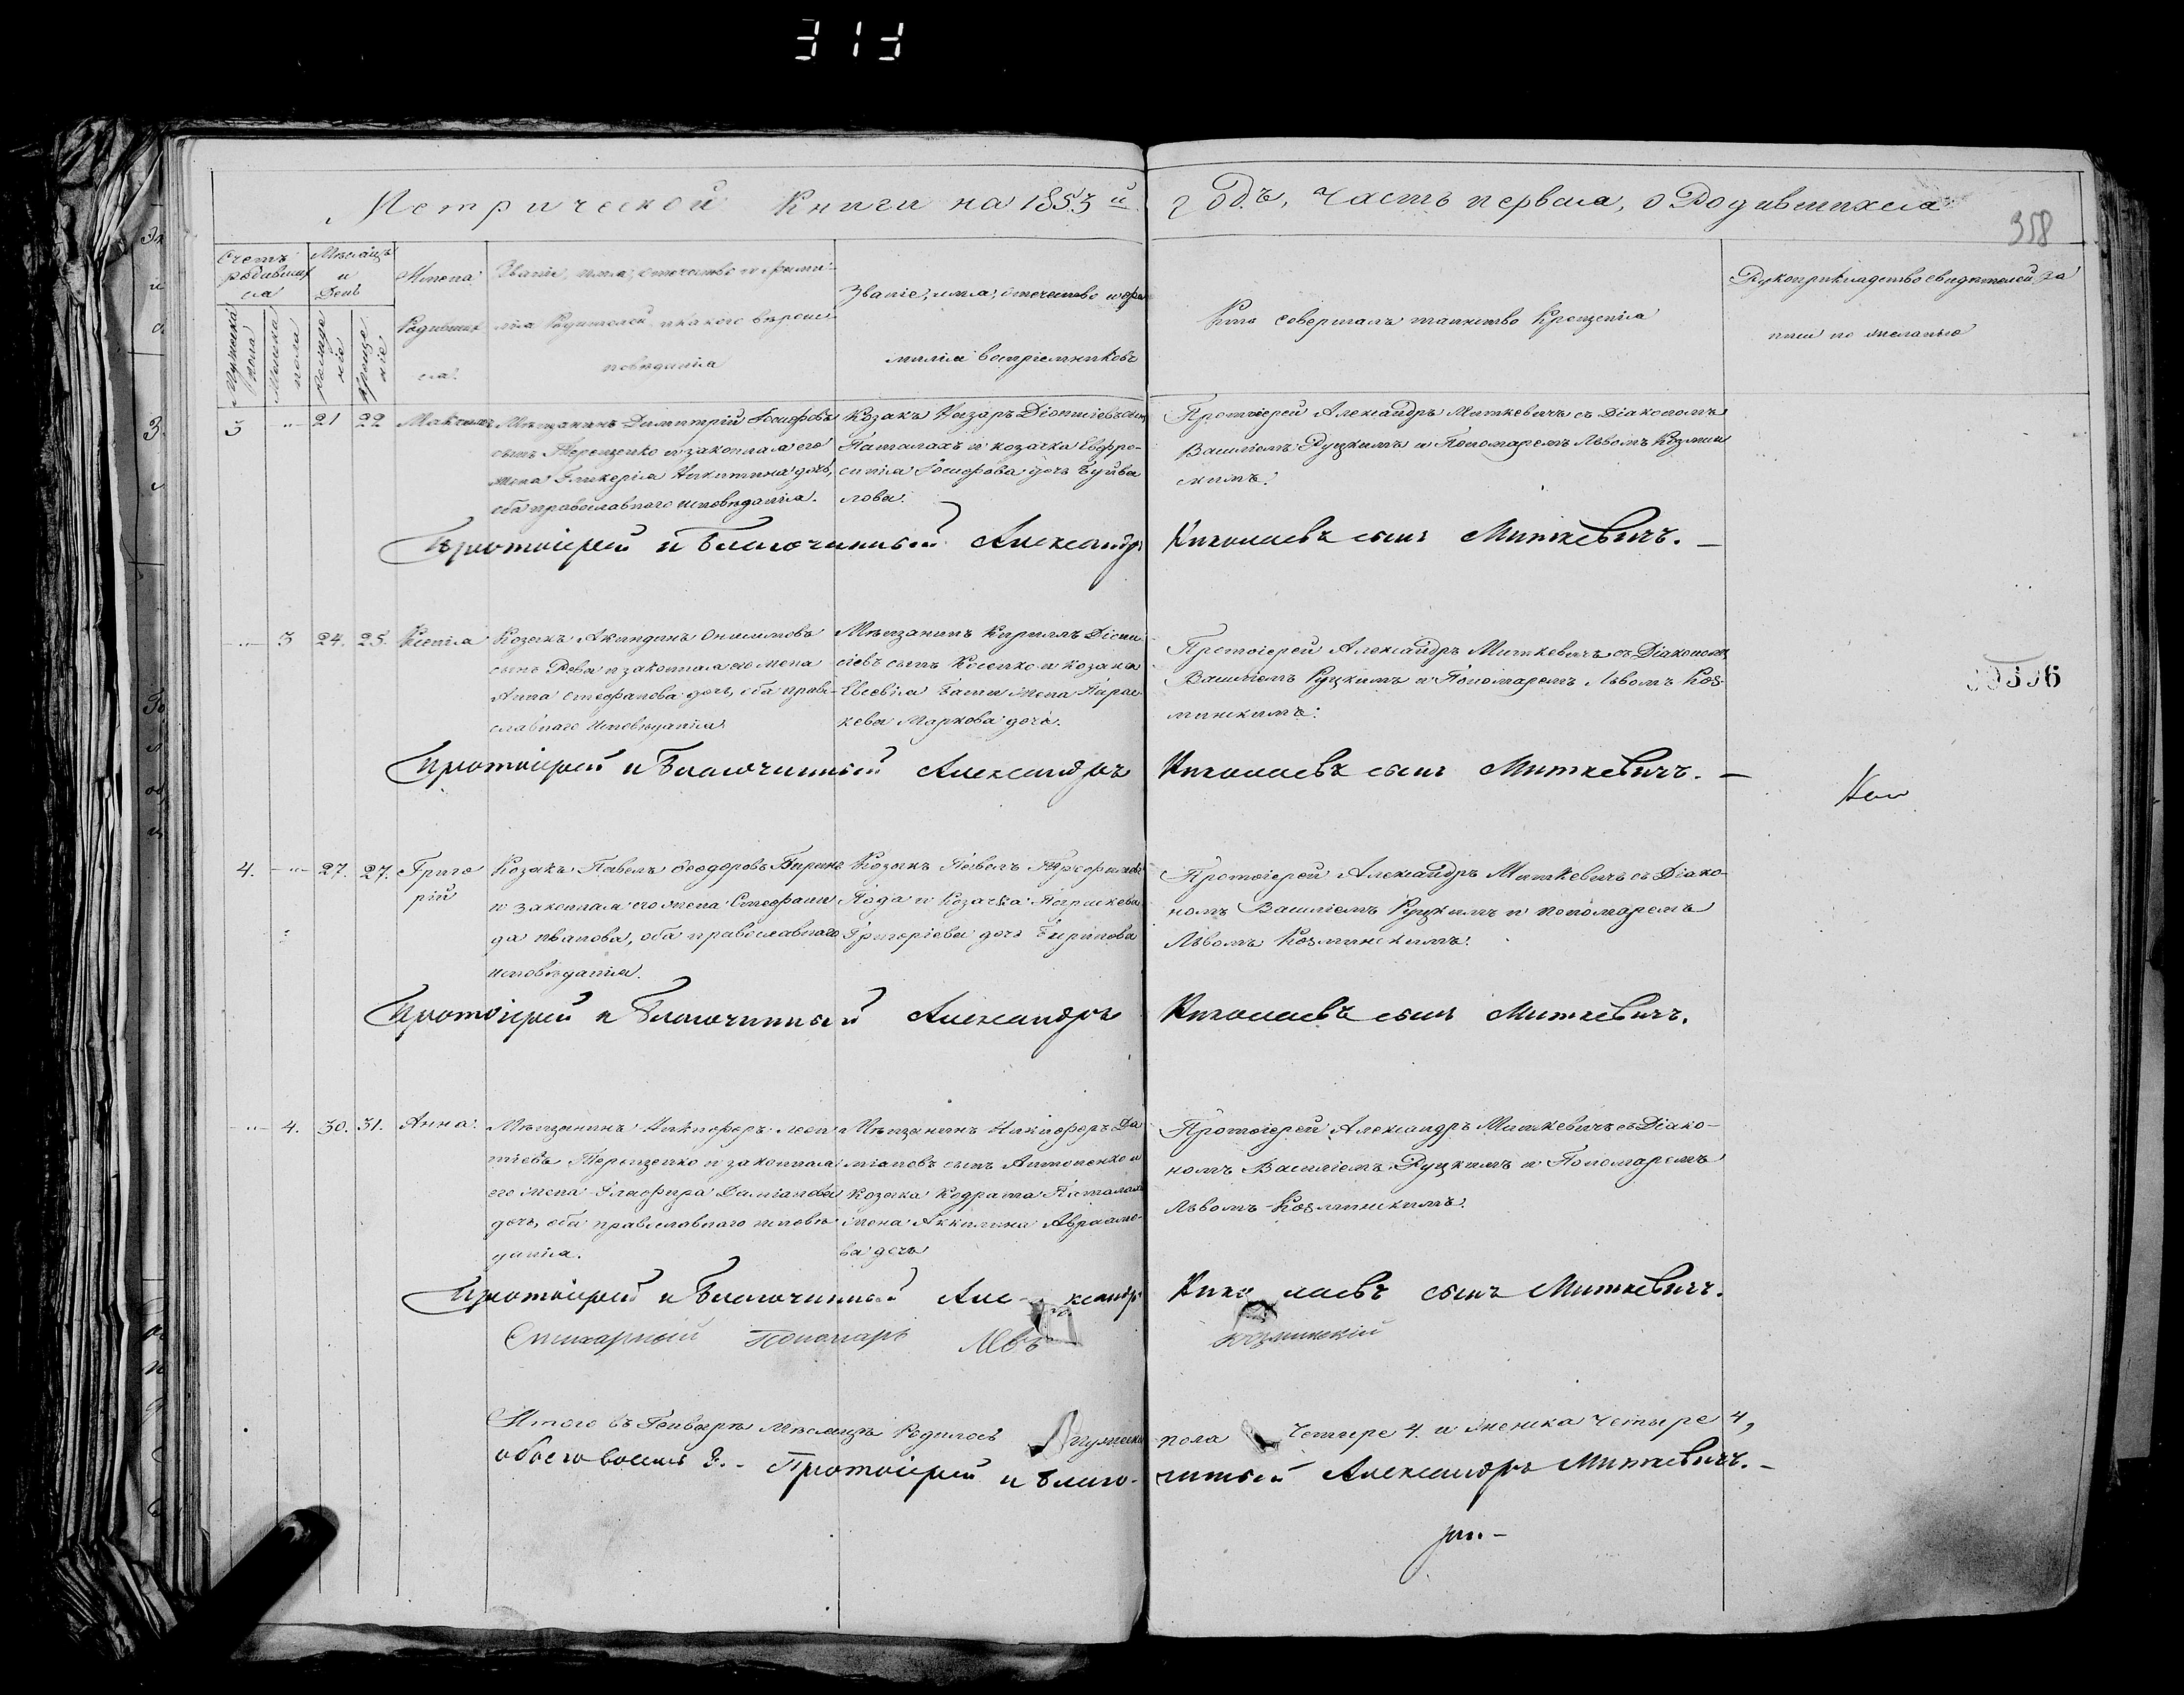 313
Метрической Книги на 1853й годъ, часть первая, о Родившихся
358
Счетъ родившихся
Мужеска пола
Женска пола
Мѣсяцъ и День
Рожденіе
Крещеніе
Имена Родившихся.
Званіе, имя, отечество и фамилія Родителей, и какого вѣроисповѣданія
Званіе, имя, отечество и фамилія воспріемниковъ
Кто совершалъ таинство Крещенія
Рукоприкладство свидѣтелей за писи по желанію
3 -"- 21 22 Максимъ
Мѣщанинъ Димитрій Іосифовъ
сынъ Терещенко и законная его
жена Гликерія Никитина дочь,
оба православнаго исповѣданія.
Козакъ Назаръ Діонисіевъ сынъ
Паталахъ и козачка Евфро-
синія Іосифова дочь Буйва
лова.
Протоіерей Александръ Миткевичъ съ Діакономъ
Василіемъ Руцкимъ и Пономаремъ Львомъ Козмин
скимъ.
Протоіерей и Благочинный Александръ Николаевъ сынъ Миткевичъ. —
-"- 3 24. 25. Ксенія
Козакъ Акиндинъ Онисимовъ
сынъ Рева и законная его жена
Анна Стефанова дочь, оба право-
славнаго Исповѣданія.
Мѣщанинъ Кириллъ Діони-
сіевъ сынъ Косенко и козака
Евсевія жена Парас-
кева Маркова дочь.
Протоіерей Александръ Миткевичъ съ Діакономъ
Василіемъ Руцкимъ и Пономаремъ Львомъ Коз-
минскимъ.
Протоіерей и Благочинный Александръ Николаевъ сынъ Миткевичъ. —
4. -"- 27. 27. Григо
рій
Козакъ Павелъ Ѳеодоровъ Биринъ
и законная его жена Стефани
да Иванова, оба православнаго
исповѣданія.
Козакъ Павелъ Трофимовъ
Пода и Козачка Параскева
Григоріева дочь Биринова
Протоіерей Александръ Миткевичъ съ Діако-
номъ Василіемъ Руцкимъ и пономаремъ
Львомъ Козминскимъ.
Протоіерей и Благочинный Александръ Николаевъ сынъ Миткевичъ.
-"- 4. 30. 31. Анна.
Мѣщанинъ Никифоръ
Терещенко и законная
его жена Глафира Даміанова
дочь, оба православнаго исповѣ
данія.
Мѣщанинъ Никифоръ Да
міановъ сынъ Антоненко и
козака Кодрата Паталаха
жена Аккилина Авраамо-
ва дочь
Протоіерей Александръ Миткевичъ съ Діако-
номъ Василіемъ Руцкимъ и Пономаремъ
Львомъ Козминскимъ.
Протоіерей и Благочинный Александръ Николаевъ сынъ Миткевичъ.
Стихарный Пономарь Левъ Козминскій
Итого въ Генварѣ мѣсяцѣ Родилось мужеска пола Четыре 4. и женска четыре 4,
обоего восемь 8. - Протоіерей и Благо- чинный Александръ Миткевичъ. -